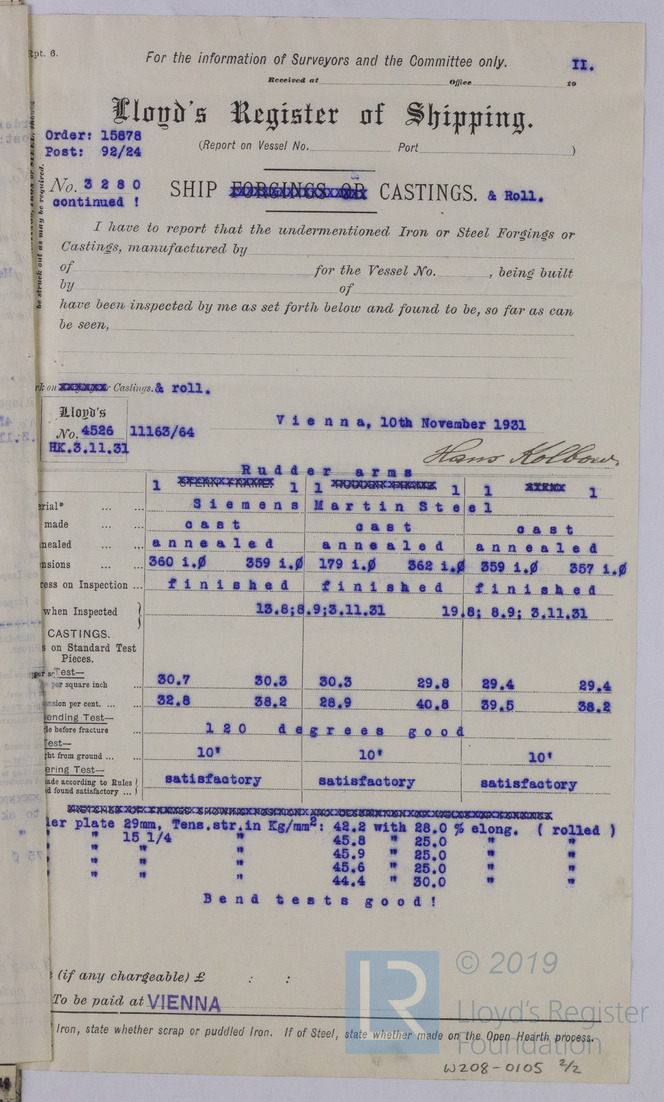 Rpt. 6.
For the information of Surveyors and the Committee only.
II.
Received at Office 19
Lloyd's Register of Shipping.
Order: 15878
Post: 92/24
(Report on Vessel No. Port )
No. 3280
continued !
SHIP FORGINGS OR CASTINGS. & Roll.
be struck out as may be required.
I have to report that the undermentioned Iron or Steel Forgings or
Castings, manufactured by
of for the Vessel No. , being built
by of
have been inspected by me as set forth below and found to be, so far as can
be seen,
rk on Castings. & roll.
Lloyd's
No. 4526
HK.3.11.31
11163/64
Vienna, 10th November 1931
Hans Kolbow
Rudder arms
1 STERN FRAME. 1 1 RUDDER FRAME 1 1 STEM 1
erial* ... ... Siemens Martin Steel
made ... ... cast cast cast
nealed ... ... annealed annealed annealed
nsions ... ... 360 i.Ø 359 i.Ø 179 i.Ø 362 i.Ø 359 i.Ø 357 i.Ø
ress on Inspection ... finished finished finished
when Inspected } 13.8;8.9;3.11.31 19.8; 8.9; 3.11.31
CASTINGS.
s on Standard Test
Pieces.
Test—
per square inch ... 30.7 30.3 30.3 29.8 29.4 29.4
nsion per cent. ... ... 32.8 38.2 28.9 40.8 39.5 38.2
ending Test—
le before fracture ... 120 degrees good
est—
ght from ground ... ... 10' 10' 10'
ering Test—
ade according to Rules }
d found satisfactory ... } satisfactory satisfactory satisfactory
ler plate 29mm, Tens.str.in Kg/mm²: 42.2 with 28.0 % elong. ( rolled )
" " 15 1/4 " 45.8 " 25.0 " "
" " " " 45.9 " 25.0 " "
" " " " 45.6 " 25.0 " "
" " " " 44.4 " 30.0 " "
Bend tests good!
(if any chargeable) £ : :
To be paid at VIENNA
Iron, state whether scrap or puddled Iron. If of Steel, state whether made on the Open Hearth process.
LR
© 2019
Lloyd's Register
Foundation
W208-0105 2/2